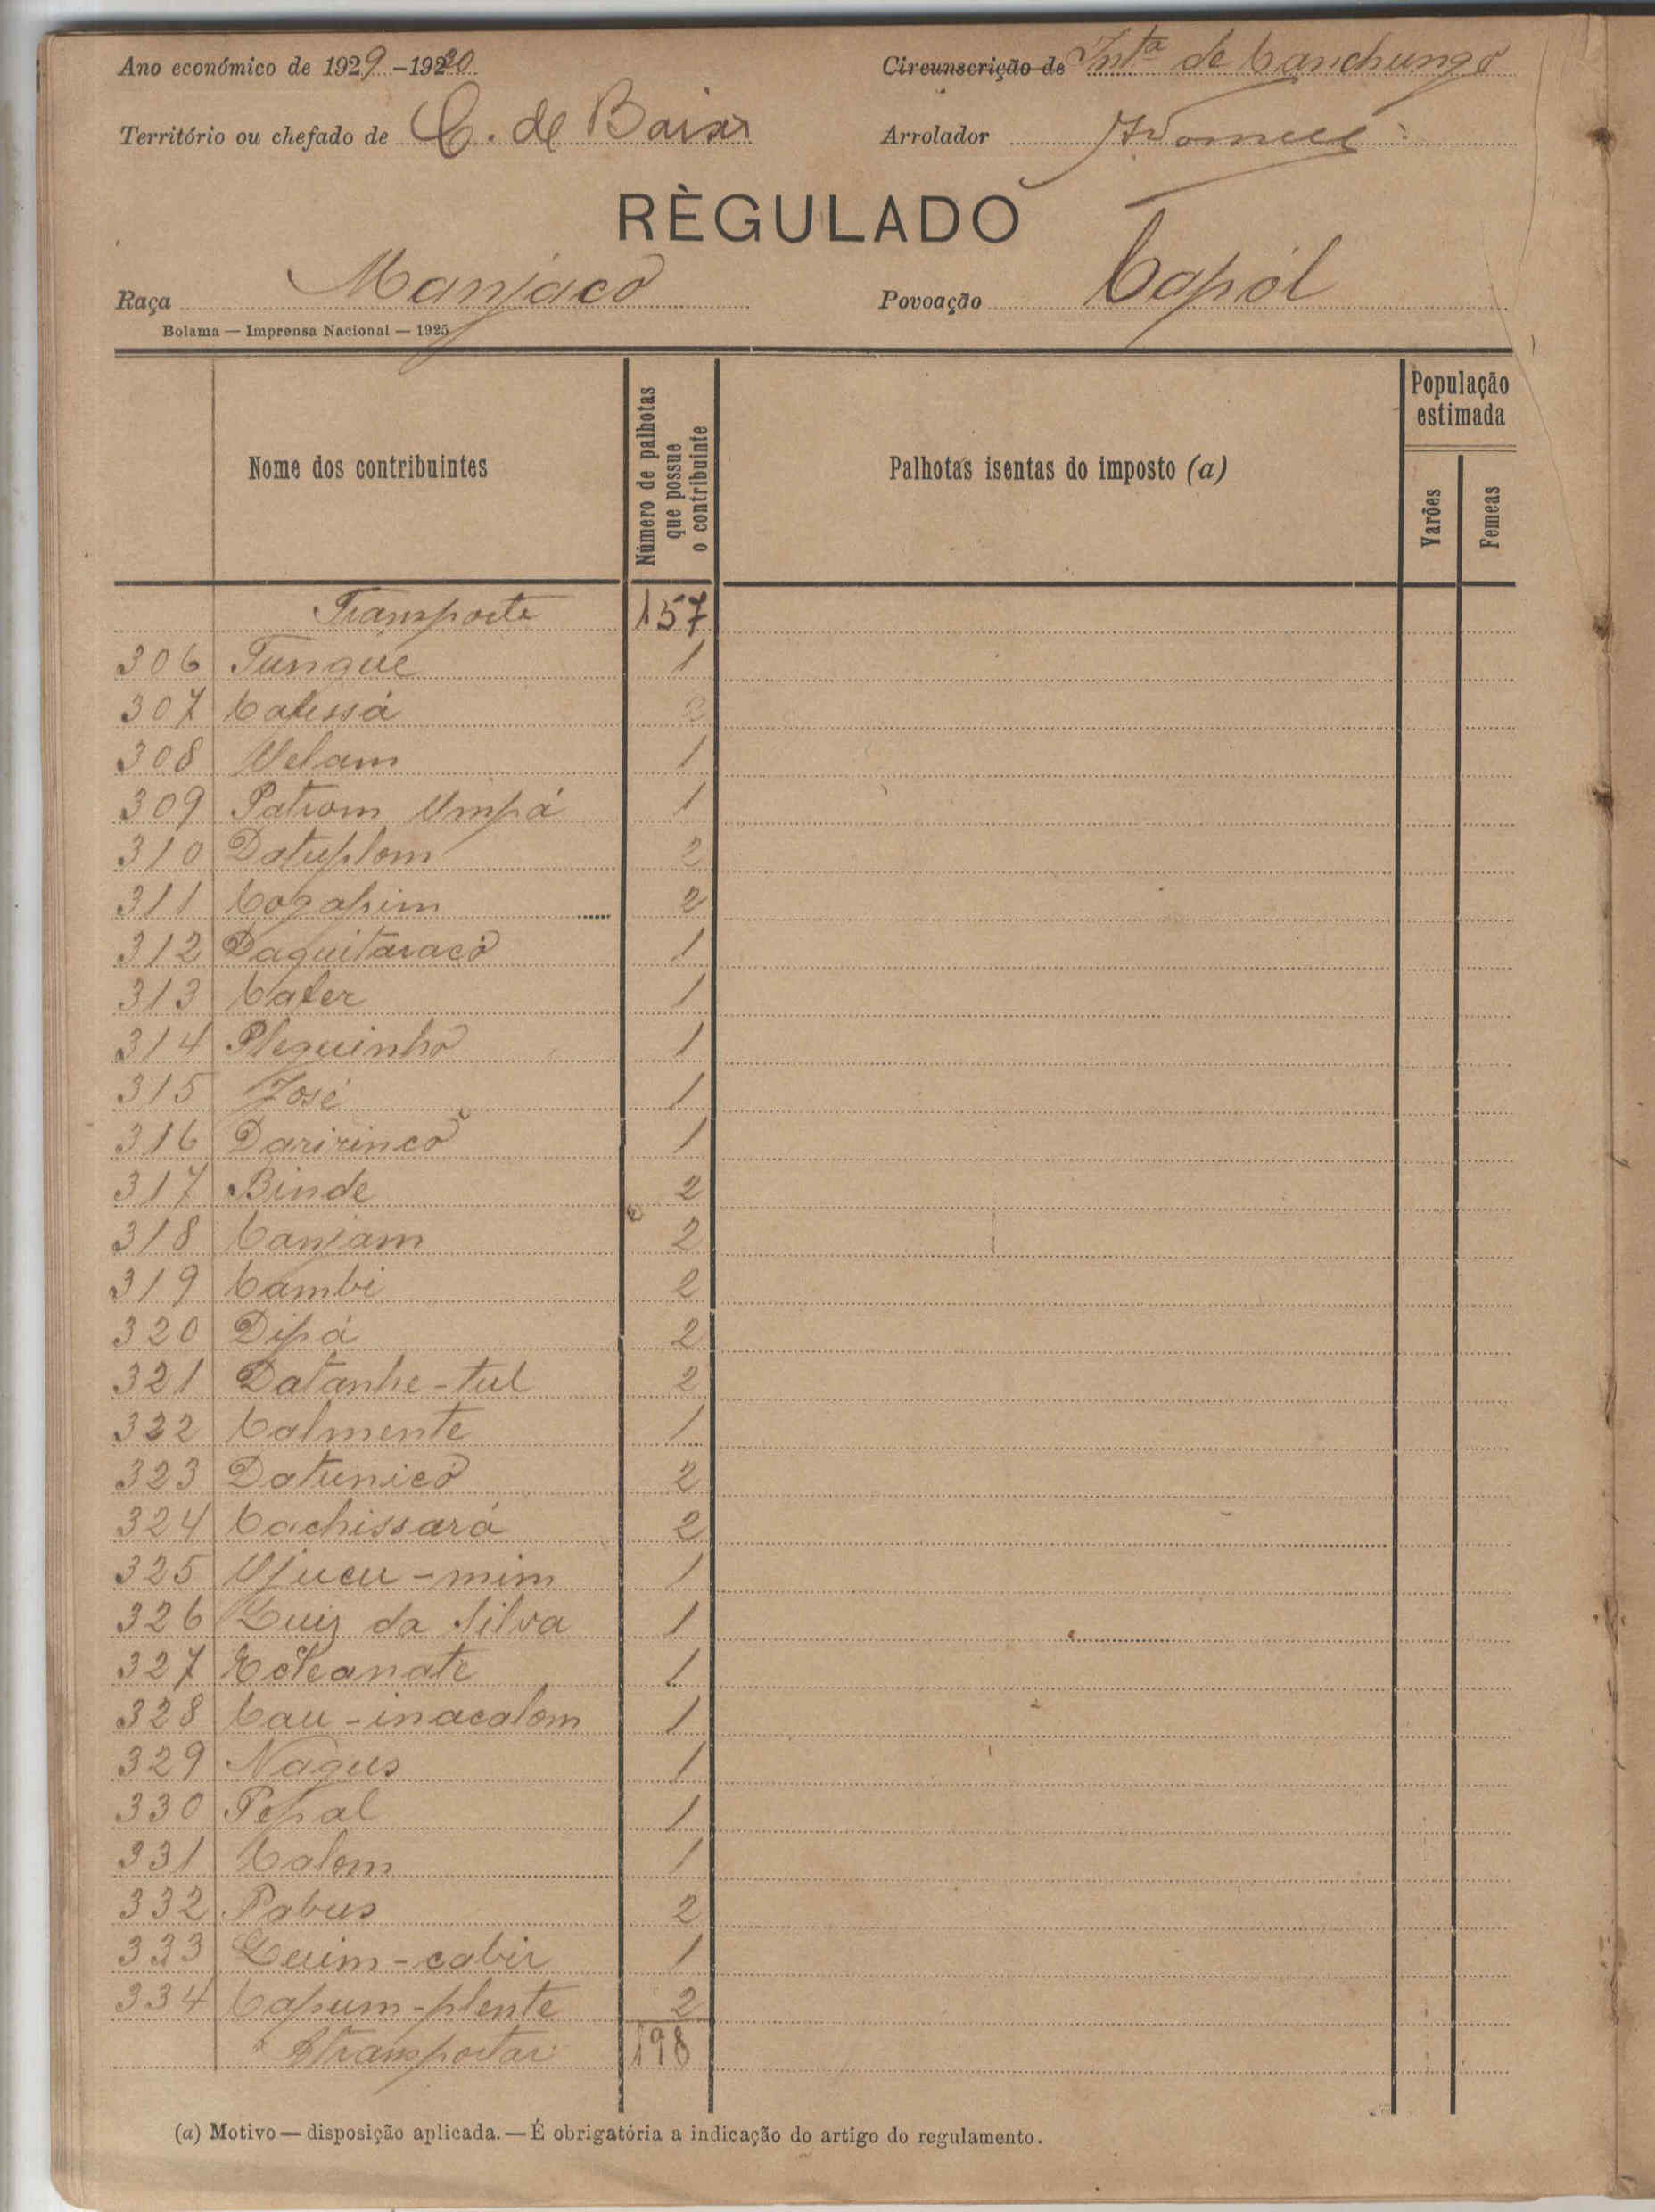 Ano económico de 1929-1930
Circunscrição de Int.ª de Canchungo
Território ou chefado de C. de Baixo
Arrolador
RÈGULADO
Raça Manjaco
Povoação Capól
Bolama — Imprensa Nacional — 1925
Nome dos contribuintes
Número de palhotas que possue o contribuinte
Palhotas isentas do imposto (a)
População estimada
Varões
Femeas
Transporte 157
306 Tungue 1
307 Catissá 2
308 Velam 1
309 Patrom Umpá 1
310 Datuplom 2
311 Cogapim 2
312 Daquitaracó 1
313 Cafer 1
314 Pleguinho 1
315 José 1
316 Daririnco 1
317 Binde 2
318 Canjam 2
319 Cambi 2
320 Dipá 2
321 Datanhe-tul 2
322 Calmente 1
323 Datunicó 2
324 Cachissará 2
325 Ujucu-mim 1
326 Luiz da Silva 1
327 1
328 Cau-inacalom 1
329 Nagus 1
330 Pepal 1
331 Calom 1
332 Pabus 2
333 Quim-cabir 1
334 Capum-plente 2
A transportar 198
(a) Motivo — disposição aplicada. — É obrigatória a indicação do artigo do regulamento.